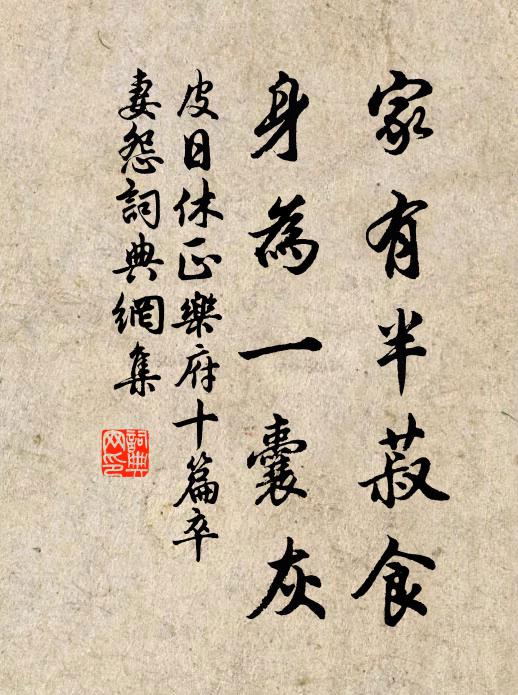 家有半菽食
身為一囊灰
皮日休正樂府十篇卒
妻怨詞典網集
詞典网印